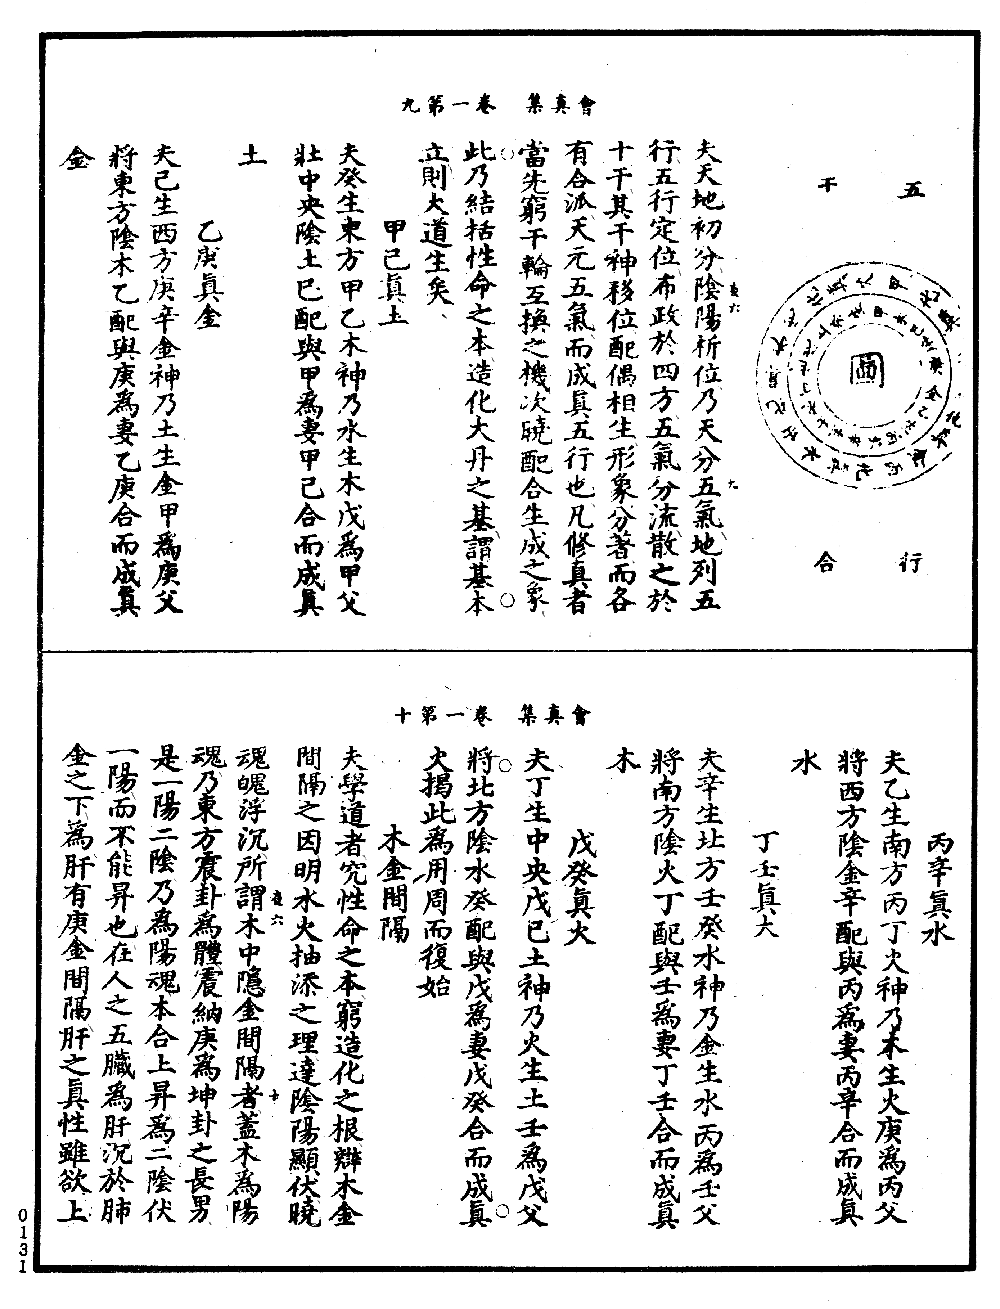 會真集　卷一第九
五
行
干
合
圖
夫天地初分陰陽析位乃天分五氣地列五
行五行定位布政於四方五氣分流散之於
十干其干神移位配偶相生形象分著而各
有合派天元五氣而成眞五行也凡修真者
當先窮干輪互換之機次曉配合生成之象
此乃結括性命之本造化大丹之基謂基本
立則大道生矣
甲己眞土
夫癸生東方甲乙木神乃水生木戊爲甲父
壯中央陰土巳配與甲爲妻甲己合而成眞
土
乙庚眞金
夫己生西方庚辛金神乃土生金甲爲庚父
將東方陰木乙配與庚爲妻乙庚合而成眞
金
會真集　卷一第十
丙辛眞水
夫乙生南方丙丁火神乃木生火庚爲丙父
將西方陰金辛配與丙爲妻丙辛合而成眞
水
丁壬眞木
夫辛生北方壬癸水神乃金生水丙爲壬父
將南方陰火丁配與壬爲妻丁壬合而成眞
木
戊癸眞火
夫丁生中央戊巳土神乃火生土壬爲戊父
將北方陰水癸配與戊爲妻戊癸合而成眞
火揭此爲用周而復始
木金間隔
夫學道者究性命之本窮造化之根辯木金
間隔之因明水火抽添之理達陰陽顯伏曉
魂魄浮沉所謂木中隱金間隔者蓋木爲陽
魂乃東方震卦爲體震納庚爲坤卦之長男
是一陽二陰乃爲陽魂本合上昇爲二陰伏
一陽而不能昇也在人之五臟爲肝沉於肺
金之下爲肝有庚金間隔肝之眞性雖欲上
0131